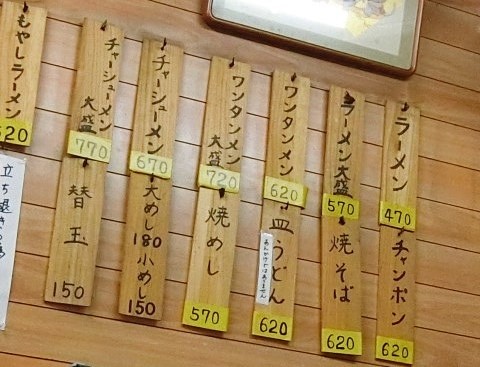 ラーメン
470
ラーメン大盛
570
ワンタンメン
620
ワンタンメン
大盛
720
チャーシューメン
670
チャーシューメン
大盛
770
もやしラーメン
620
チャンポン
620
焼そば
620
皿うどん
あんかけではありません
620
焼めし
570
大めし
180
小めし
150
替玉
150
立ち退きの為